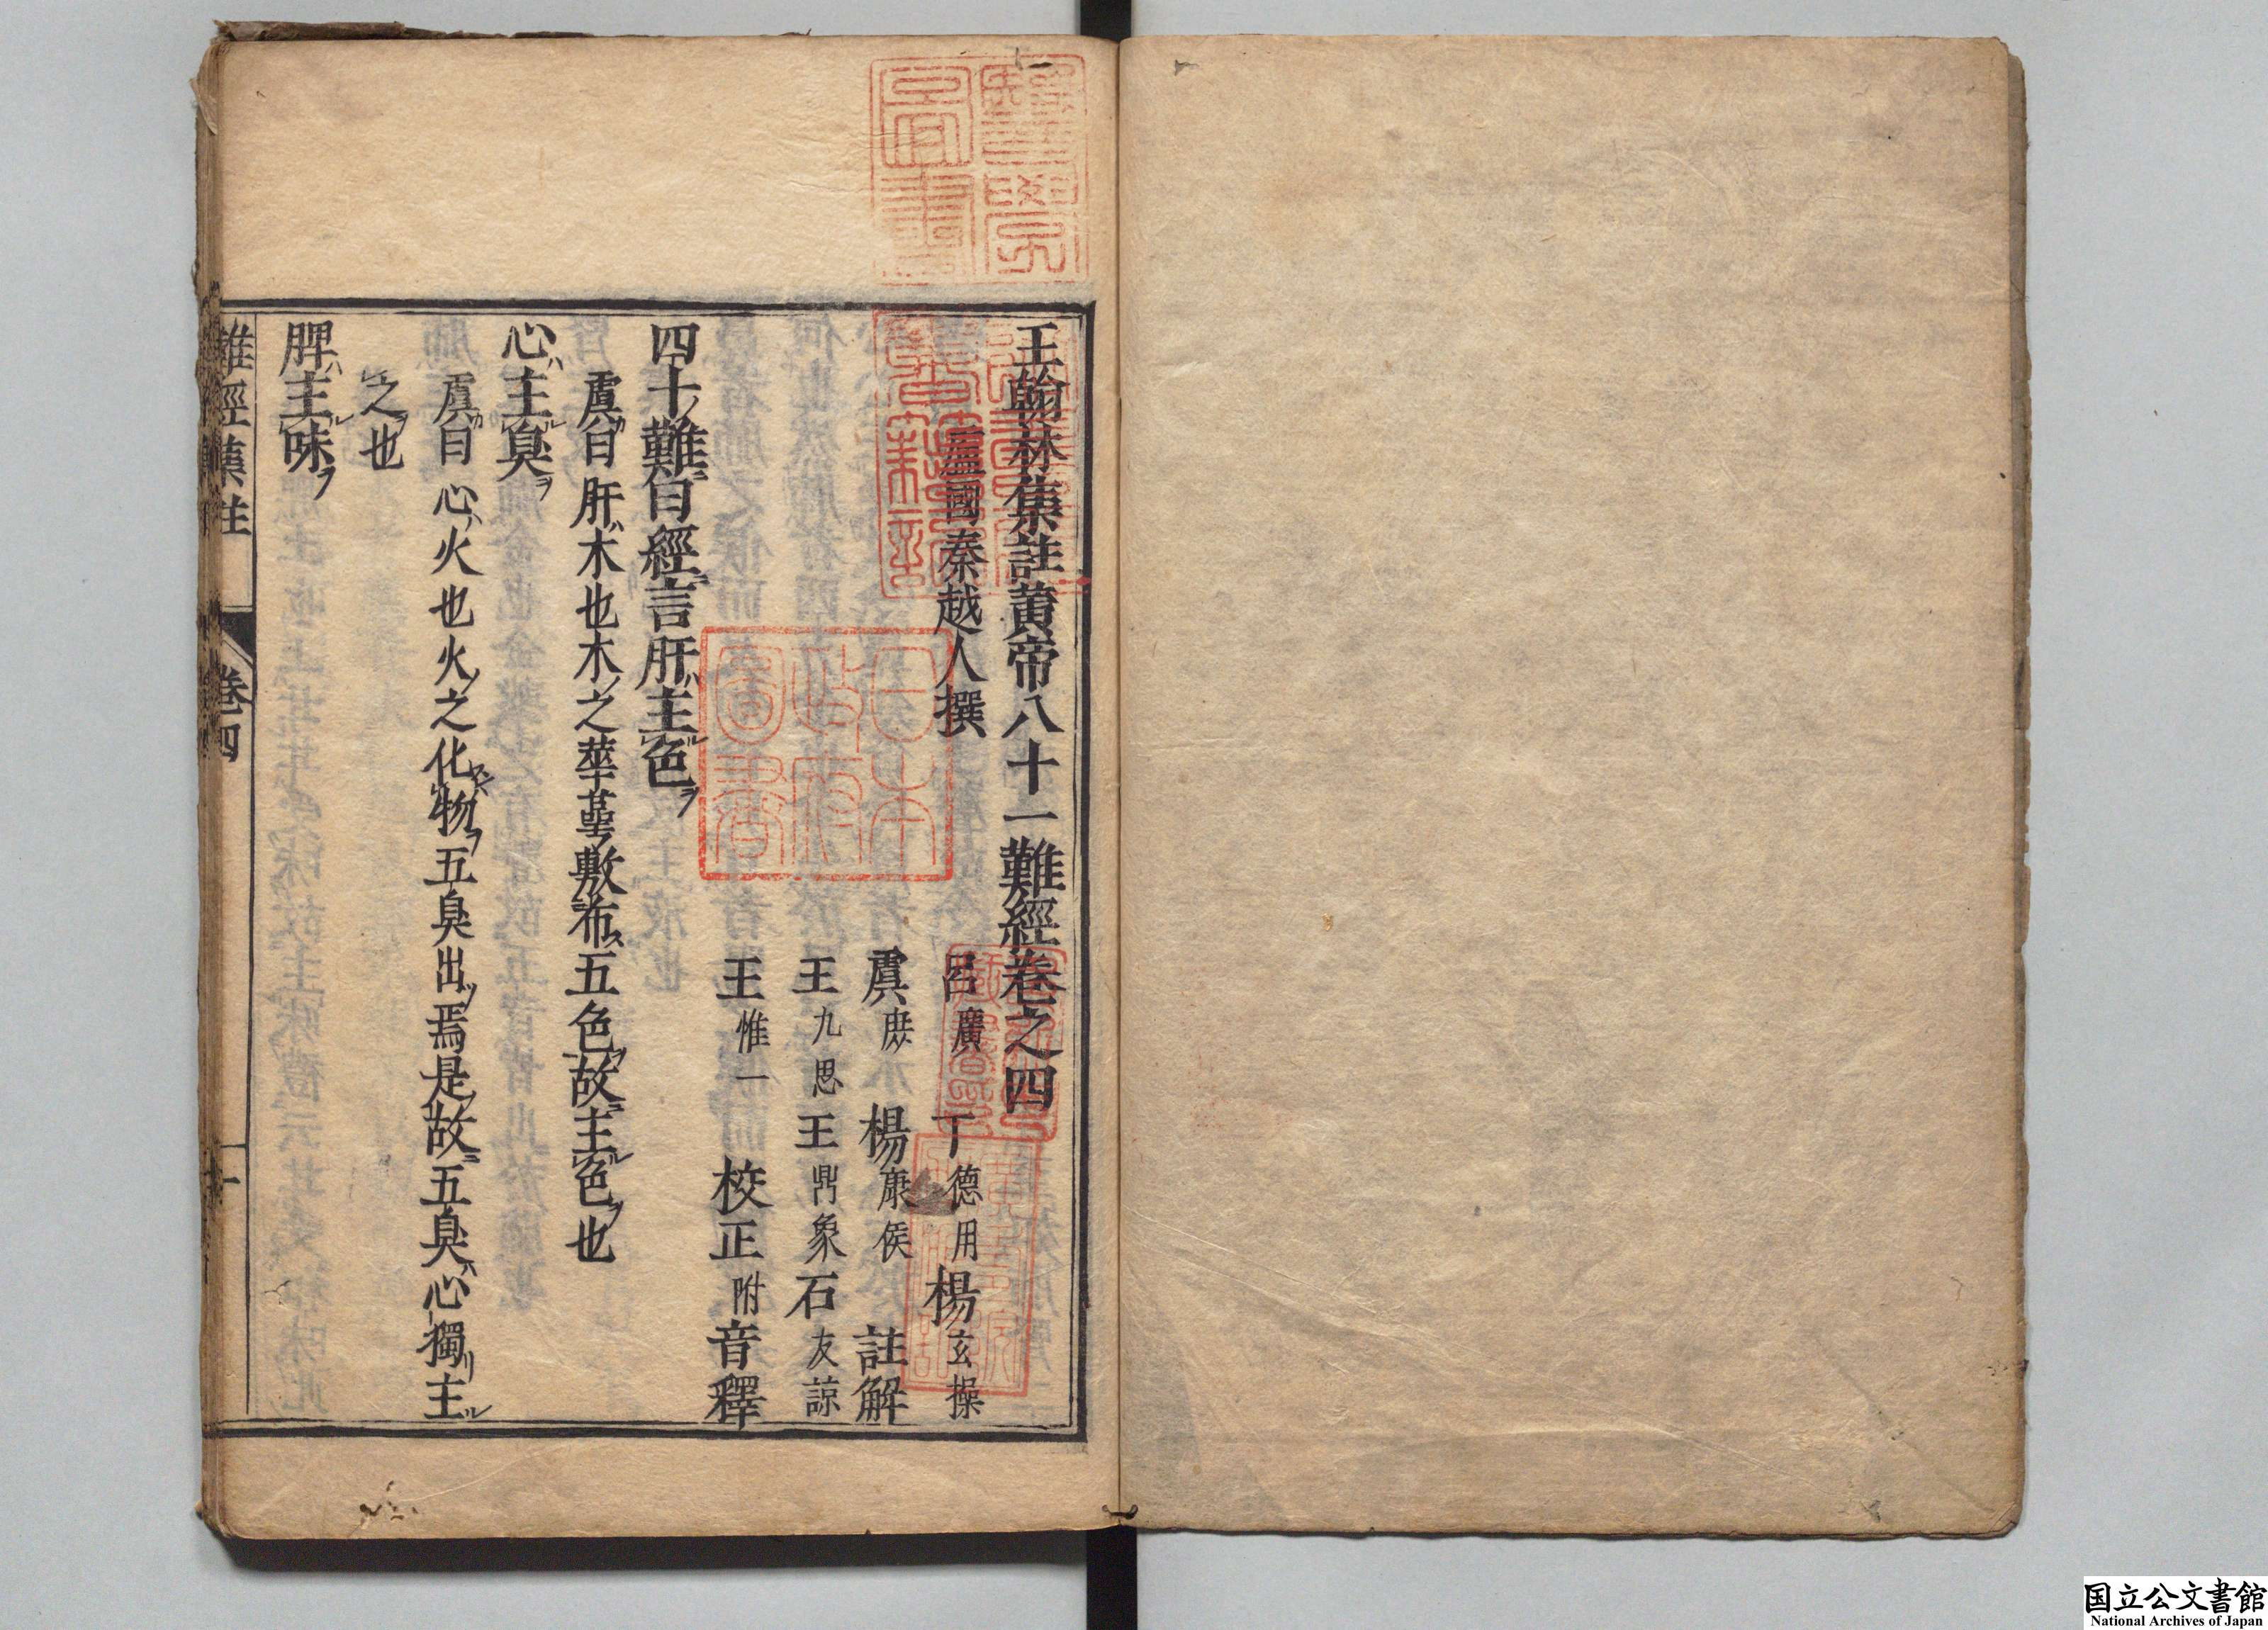 王翰林集註黃帝八十一難經卷之四
盧國秦越人撰
呂廣 丁德用 楊玄操
虞庶 楊康侯 註解
王九思 王鼎象 石友諒
王惟一 校正附音釋
四十難曰經言肝主色
虞曰肝木也木之華萼敷布五色故主色也
心主臭
虞曰心火也火之化物五臭出焉是故五臭心獨主
之也
脾主味
難經集註 卷四 一
日本政府圖書
国立公文書館
National Archives of Japan